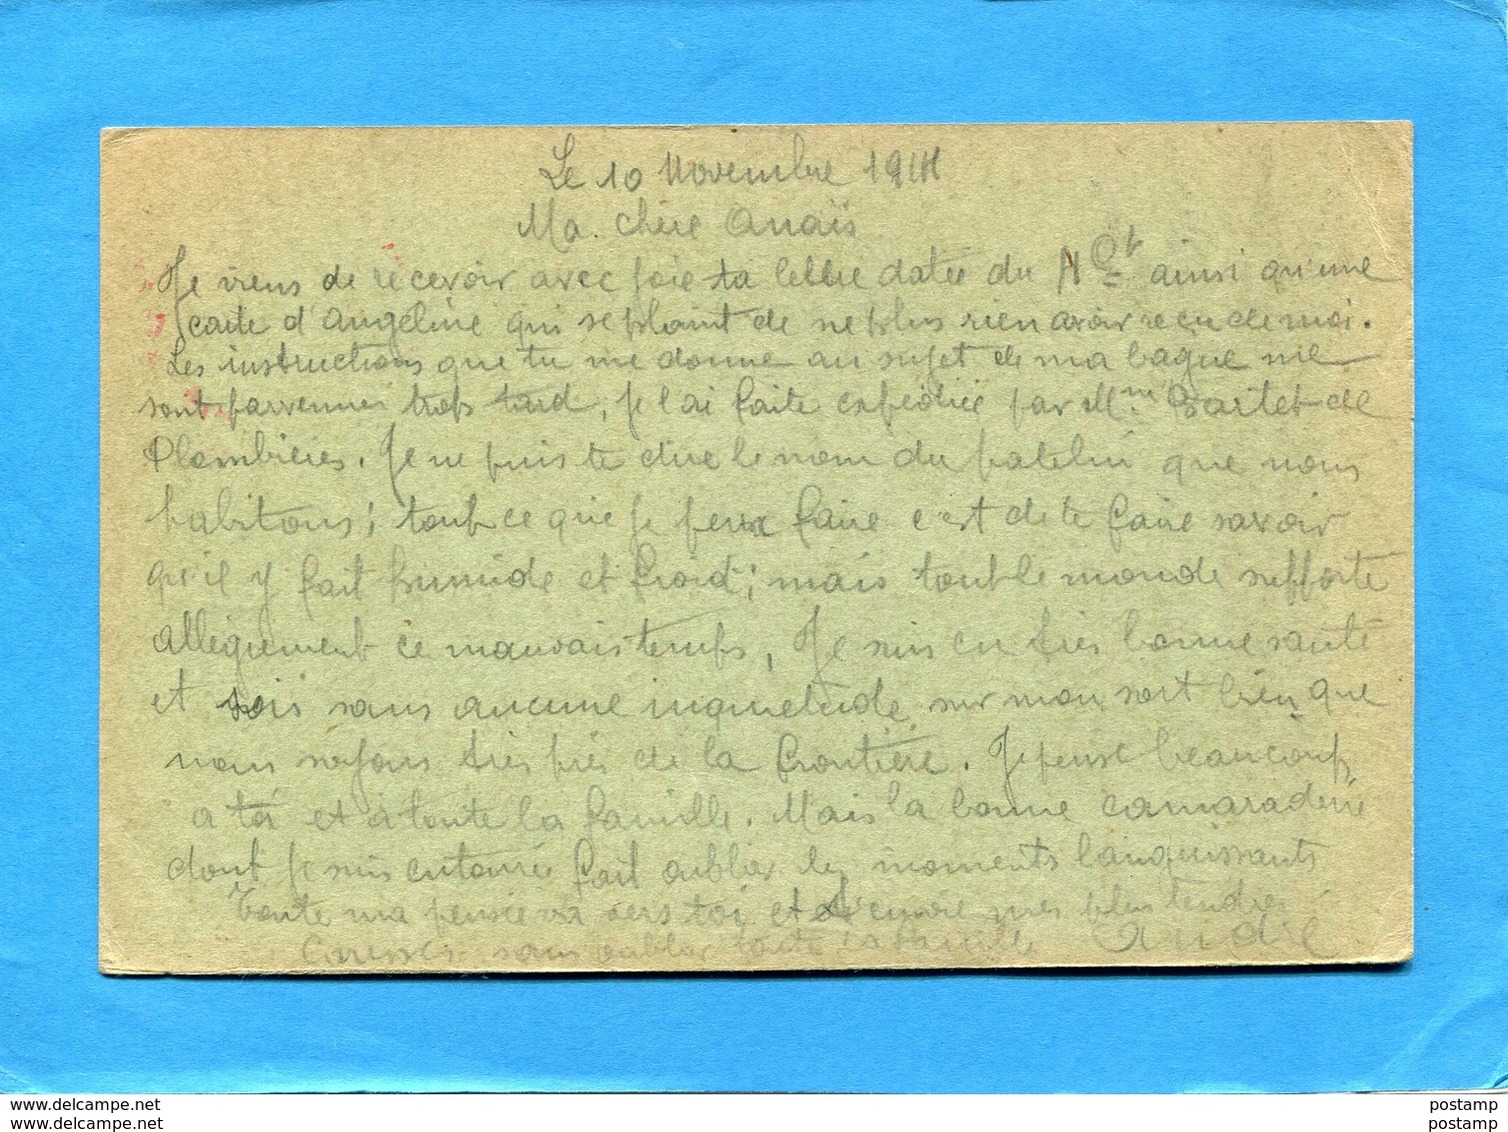 Le 10 Novembre 1914
Ma chère Anaïs
Je viens de recevoir avec joie ta lettre datée du ainsi qu'une
carte d'Angéline qui se plaint de ne plus rien avoir reçu de moi.
Les instructions que tu me donne au sujet de ma bague me
sont parvenues trop tard, je l'ai faite expédiée par Mme Bartet de
Plombières. Je ne puis te dire le nom du patelin que nous
habitons; tout ce que je peux faire c'est de te faire savoir
qu'il y fait humide et froid; mais tout le monde supporte
allègrement ce mauvais temps, Je suis en très bonne santé
et suis sans aucune inquietude sur mon sort bien que
nous soyons très près de la frontière. Je pense beaucoup
à toi et à toute la famille. Mais la bonne camaraderie
dont je suis entourée fait oublier les moments languissants
Toute ma pensée va vers toi et t'envoie mes plus tendres
Caresses sans oublier toute la famille André
www.delcampe.net
www.delcampe.net
postamp
postamp